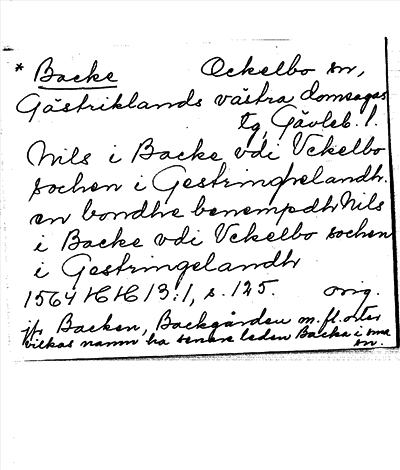 * Backe Ockelbo sn,
Gästriklands västra domsagas
tg, Gävleb. l.
Nils i Backe vdi Vckelbo
sochen i Gestringhelandh.
en bondhe benempdh Nils
i Backe vdi Vckelbo sochen
i Gestringelandh
1564 HH 13:1, s. 125. orig.
jfr Backen, Backgården m.fl. orter
vilkas namn ha senare leden Backa i sma
sn.